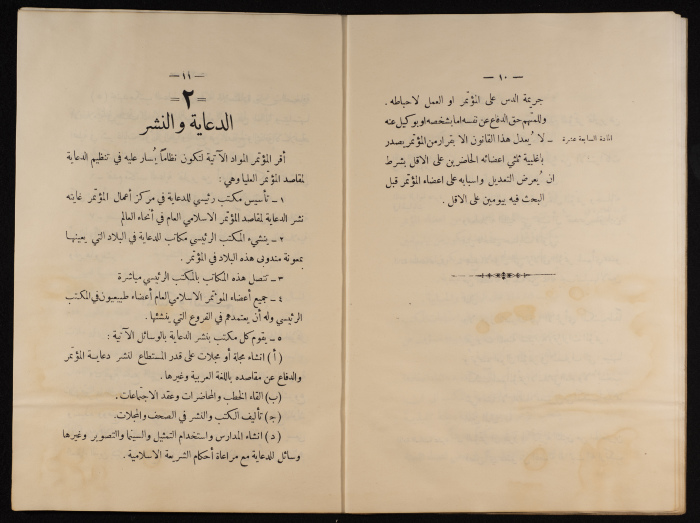 — ١٠ —
جريمة الدس على المؤتمر او العمل لاحباطه .
وللمتهم حق الدفاع عن نفسه اما بشخصه او بوكيل عنه
المادة السابعة عشرة — لا يُعدل هذا القانون الا بقرار من المؤتمر يصدر
باغلبية ثلثي اعضائه الحاضرين على الاقل بشرط
ان يُعرض التعديل واسبابه على اعضاء المؤتمر قبل
البحث فيه بيومين على الاقل .
— ١١ —
٢
الدعاية والنشر
أقر المؤتمر المواد الآتية لتكون نظاماً يُسار عليه في تنظيم الدعاية
لمقاصد المؤتمر العليا وهي :
١ — تأسيس مكتب رئيسي للدعاية في مركز أعمال المؤتمر غايته
نشر الدعاية لمقاصد المؤتمر الاسلامي العام في أنحاء العالم
٢ — ينشيء المكتب الرئيسي مكاتب للدعاية في البلاد التي يعينها
بمعونة مندوبي هذه البلاد في المؤتمر .
٣ — تتصل هذه المكاتب بالمكتب الرئيسي مباشرة
٤ — جميع أعضاء المؤتمر الاسلامي العام أعضاء طبيعيون في المكتب
الرئيسي وله أن يعتمدهم في الفروع التي ينشئها .
٥ — يقوم كل مكتب بنشر الدعاية بالوسائل الآتية :
(أ) انشاء مجلة أو مجلات على قدر المستطاع لنشر دعاية المؤتمر
والدفاع عن مقاصده باللغة العربية وغيرها .
(ب) القاء الخطب والمحاضرات وعقد الاجتماعات .
(ج) تأليف الكتب والنشر في الصحف والمجلات .
(د) انشاء المدارس واستخدام التمثيل والسينما والتصوير وغيرها
وسائل للدعاية مع مراعاة أحكام الشريعة الاسلامية .